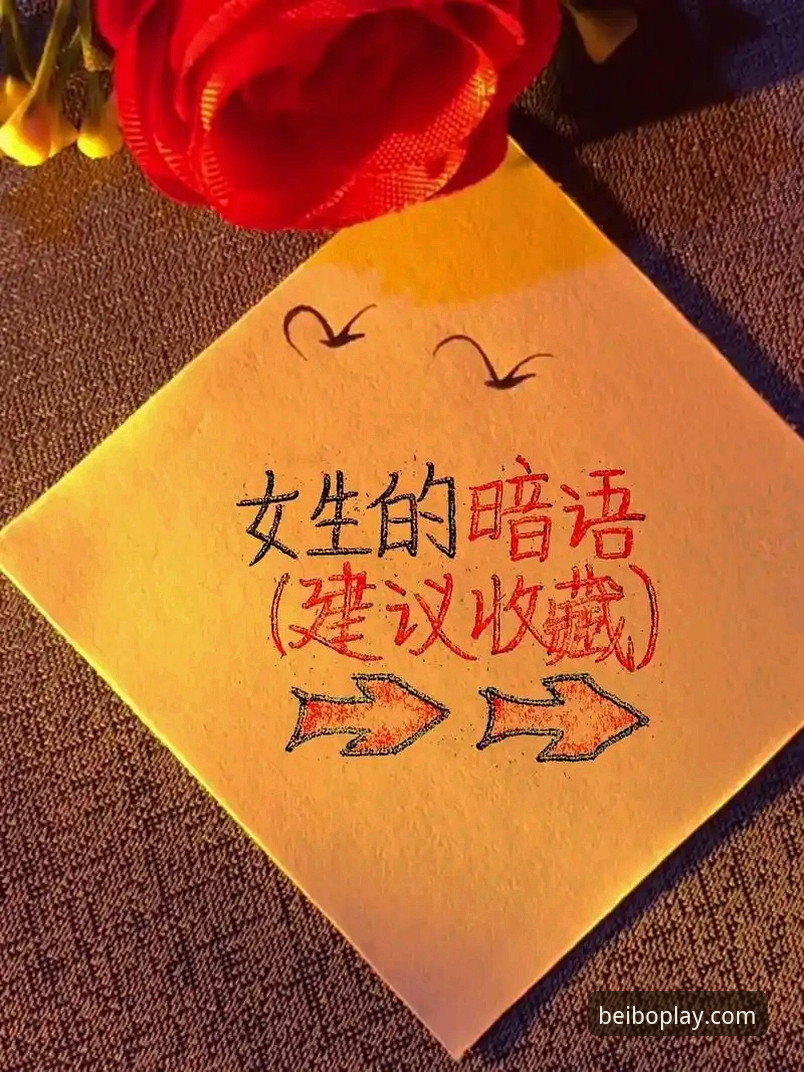 女生的暗语
(建议收藏)
beiboplay.com